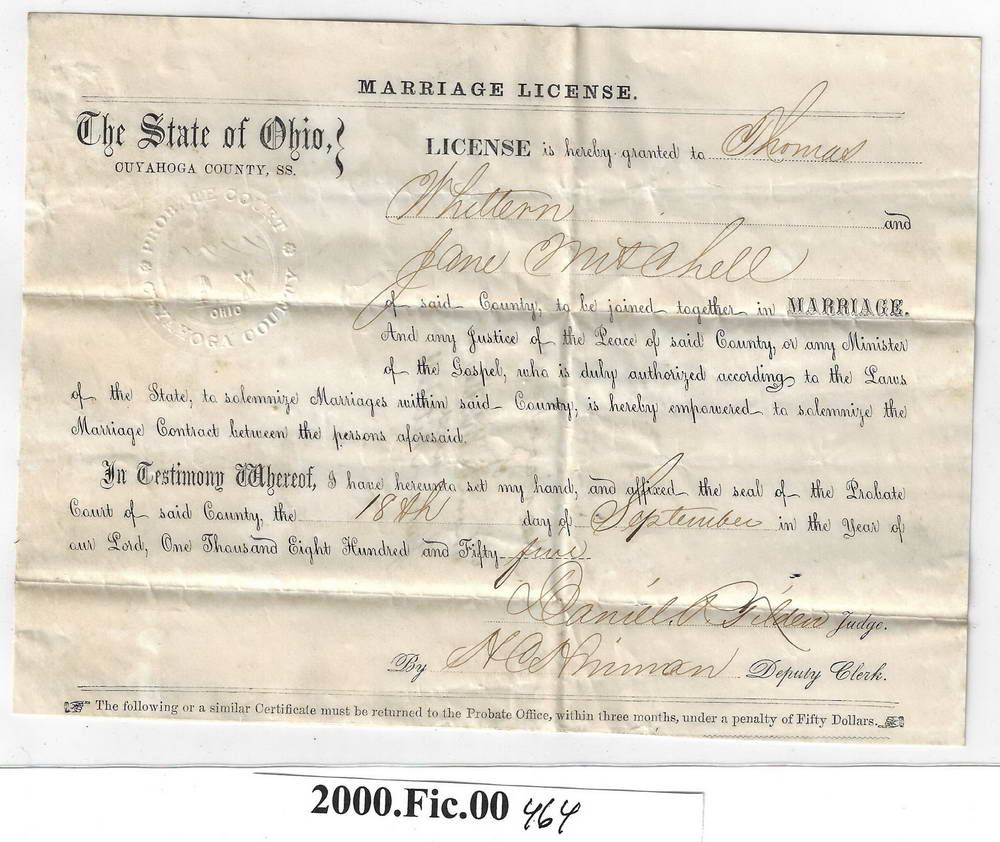 MARRIAGE LICENSE.
The State of Ohio,
CUYAHOGA COUNTY, SS.
PROBATE COURT
CUYAHOGA COUNTY
OHIO
LICENSE is hereby granted to Thomas
Whittern and
Jane Mitchell
of said County, to be joined together in MARRIAGE.
And any Justice of the Peace of said County, or any Minister
of the Gospel, who is duly authorized according to the Laws
of the State, to solemnize Marriages within said County, is hereby empowered to solemnize the
Marriage Contract between the persons aforesaid.
In Testimony Whereof, I have hereunto set my hand, and affixed the seal of the Probate
Court of said County, the 18th day of September in the Year of
our Lord, One Thousand Eight Hundred and Fifty five
Daniel R Tilden Judge.
By H C Hinman Deputy Clerk.
The following or a similar Certificate must be returned to the Probate Office, within three months, under a penalty of Fifty Dollars.
2000.Fic.00 464